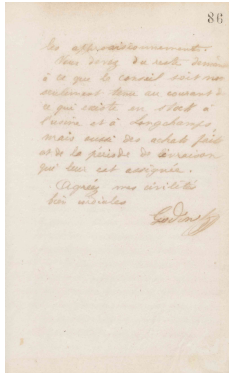 86
les approvisionnements.
Vous devez du reste
à ce que le conseil soit non
seulement tenu au courant de
ce qui existe en stock à
l'usine et à Longchamps
mais aussi des achats faits
et de la période de livraison
qui leur est assignée.
Agréez mes civilités
très cordiales
Godin